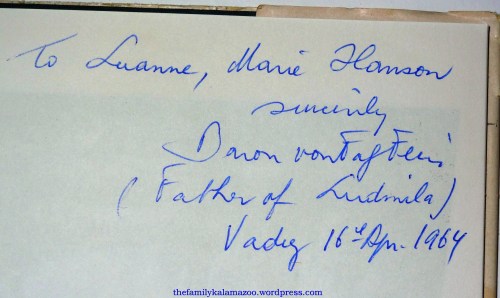 To Luanne, Marie Hanson
sincerly
Baron von Falz Fein
(Father of Ludmila)
Vaduz 16th Apr. 1964
thefamilykalamazoo.wordpress.com